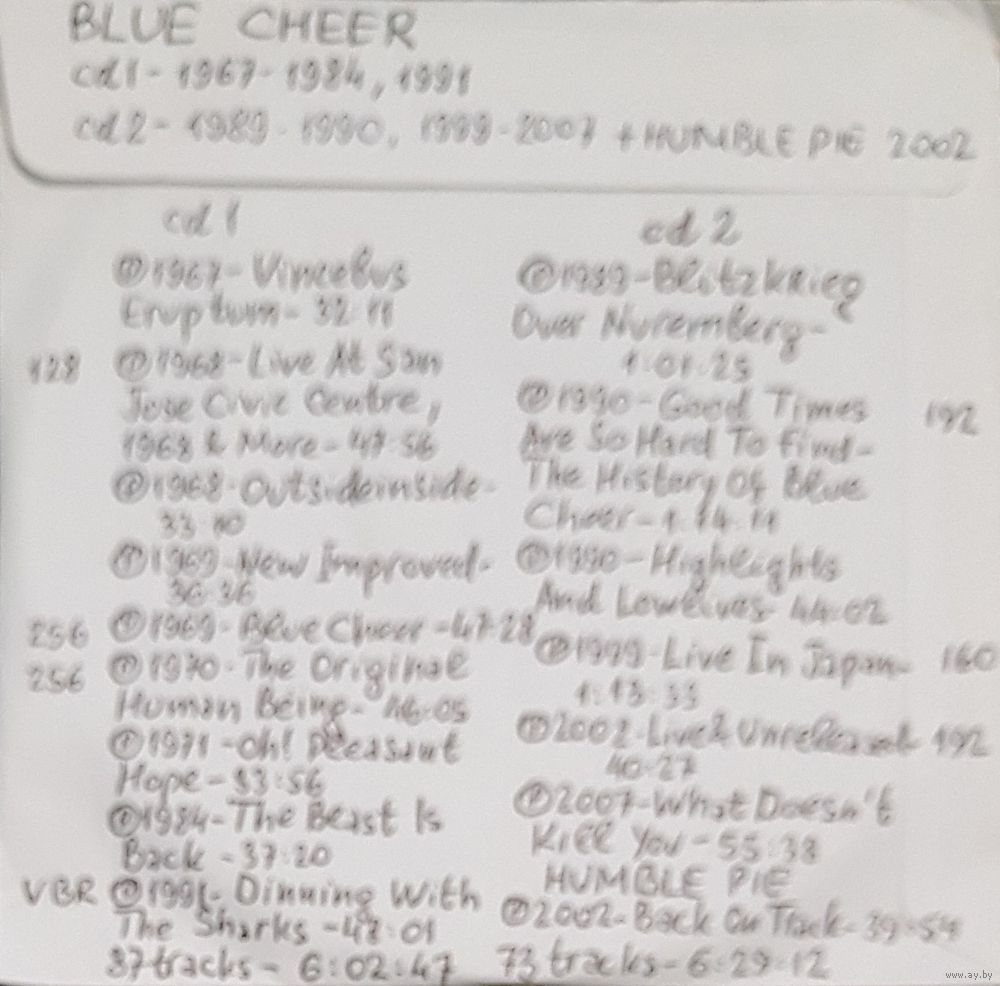 BLUE CHEER
cd1 - 1967 - 1984, 1991
cd2 - 1989 - 1990, 1999 - 2007 + HUMBLE PIE 2002
cd 1
Ⓟ1967 - Vincebus
Eruptum - 32:11
128 Ⓟ1968 - Live At San
Jose Civic Centre,
1968 & More - 47:56
Ⓟ1968 - Outsideinside -
33:10
Ⓟ1969 - New Improved -
36:36
256 Ⓟ1969 - Blue Cheer - 47:28
256 Ⓟ1970 - The Original
Human Being - 46:05
Ⓟ1971 - Oh! Pleasant
Hope - 33:56
Ⓟ1984 - The Beast Is
Back - 37:20
VBR Ⓟ1991 - Dinning With
The Sharks - 47:01
87 tracks - 6:02:47
cd 2
Ⓟ1989 - Blitzkrieg
Over Nuremberg -
1:01:25
Ⓟ1990 - Good Times 192
Are So Hard To Find -
The History Of Blue
Cheer - 1:14:11
Ⓟ1990 - Highlights
And Lowlives - 44:02
Ⓟ1999 - Live In Japan - 160
1:13:33
Ⓟ2002 - Live & Unreleased - 192
40:27
Ⓟ2007 - What Doesn't
Kill You - 55:38
HUMBLE PIE
Ⓟ2002 - Back On Track - 39:54
73 tracks - 6:29:12
www.ay.by